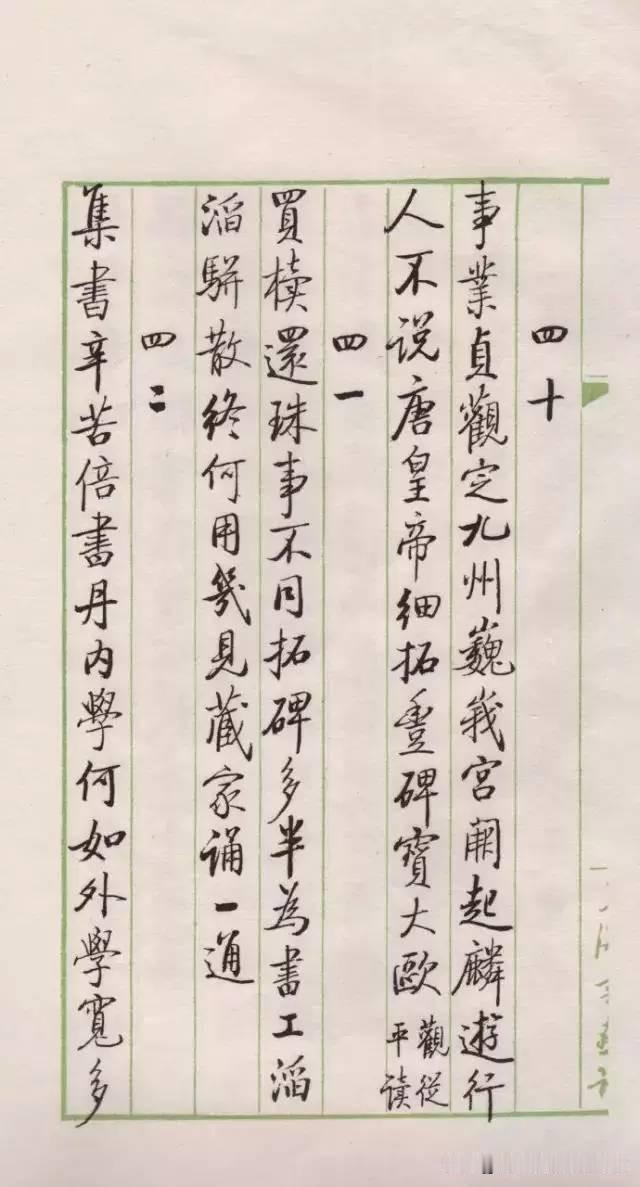 四十
事業貞觀定九州巍峩宮闕起麟遊行
人不说唐皇帝细拓豐碑寶大歐觀從
平读
四一
買櫝還珠事不同拓碑多半為書工滔
滔駢散終何用幾見藏家誦一通
四二
集書辛苦倍書丹内學何如外學寬多